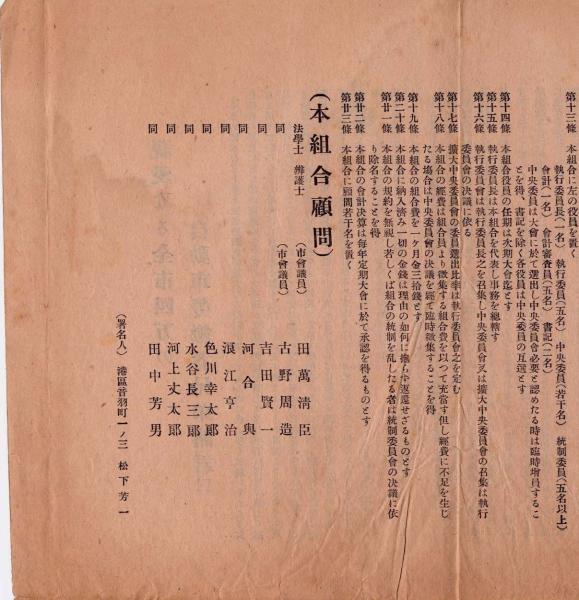 第十三條 本組合に左の役員を置く
執行委員長(一名) 執行委員(五名) 中央委員(若干名) 統制委員(五名以上)
會計(一名) 會計審査員(五名) 書記(二名)
中央委員は大會に於て選出し中央委員會必要と認めたる時は臨時增員するこ
とを得、書記を除く各役員は中央委員の互選とす
第十四條 本組合役員の任期は次期大會迄とす
第十五條 執行委員長は本組合を代表し事務を總轄す
第十六條 執行委員會は執行委員長之を召集し中央委員會又は擴大中央委員會の召集は執行
委員會の決議に依る
第十七條 擴大中央委員會の委員選出比率は執行委員會之を定む
第十八條 本組合の經費は組合員より徵集する組合費を以つて充當す但し經費に不足を生じ
たる場合は中央委員會の決議を經て臨時徵集することを得
第十九條 本組合の組合費を一ケ月金三拾錢とす
第二十條 本組合に納入濟み一切の金錢は理由の如何に拘らず返還せざるものとす
第廿一條 本組合の規約を無視し若しくば組合の統制を亂したる者は統制委員會の決議に依
り除名することを得
第廿二條 本組合の會計決算は每年定期大會に於て承認を得るものとす
第廿三條 本組合に顧問若干名を置く
(本組合顧問)
法學士 辯護士 (市會議員) 田萬清臣
同 (市會議員) 古野周造
同 吉田賢一
同 河合與
同 濵江亨治
同 色川幸太郎
同 水谷長三郎
同 河上丈太郎
同 田中芳男
(署名人) 港區音羽町一ノ三 松下芳一